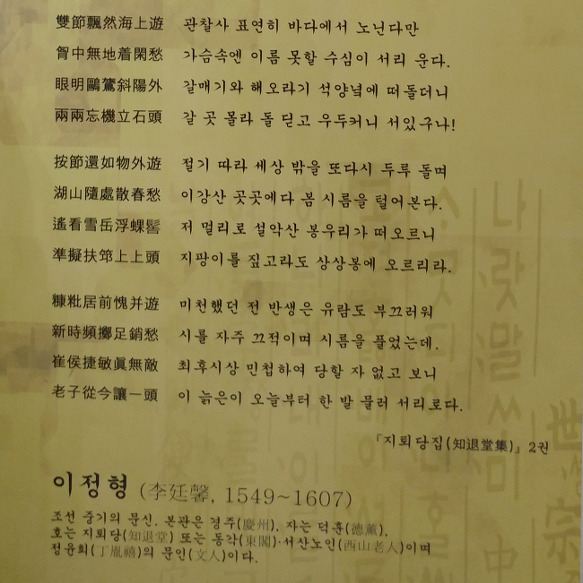 雙節飄然海上遊 관찰사 표연히 바다에서 노닌다만
胷中無地着閑愁 가슴속엔 이름 못할 수심이 서리 운다.
眼明鷗鷺斜陽外 갈매기와 해오라기 석양녘에 떠돌더니
兩兩忘機立石頭 갈 곳 몰라 돌 딛고 우두커니 서있구나!
按節還如物外遊 절기 따라 세상 밖을 또다시 두루 돌며
湖山隨處散春愁 이강산 곳곳에다 봄 시름을 털어본다.
遙看雪岳浮螺髻 저 멀리로 설악산 봉우리가 떠오르니
準擬扶筇上上頭 지팡이를 짚고라도 상상봉에 오르리라.
糠粃居前愧并遊 미천했던 전 반생은 유람도 부끄러워
新時頻擲足銷愁 시를 자주 끄적이며 시름을 풀었는데.
崔侯捷敏眞無敵 최후시상 민첩하여 당할 자 없고 보니
老子從今讓一頭 이 늙은이 오늘부터 한 발 물러 서리로다.
『지퇴당집(知退堂集)』2권
이정형 (李廷馨, 1549~1607)
조선 중기의 문신. 본관은 경주(慶州), 자는 덕훈(德薰),
호는 지퇴당(知退堂) 또는 동각(東閣)·서산노인(西山老人)이며
정윤희(丁胤禧)의 문인(文人)이다.